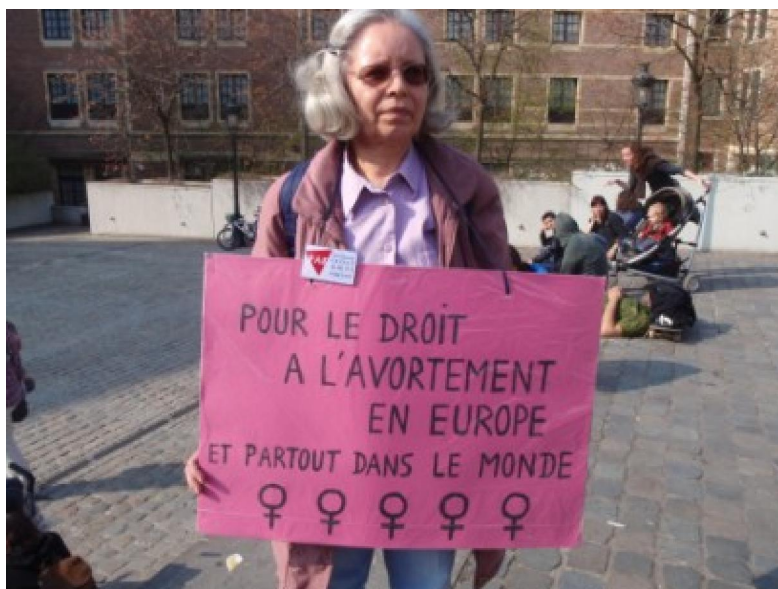 POUR LE DROIT
A L'AVORTEMENT
EN EUROPE
ET PARTOUT DANS LE MONDE